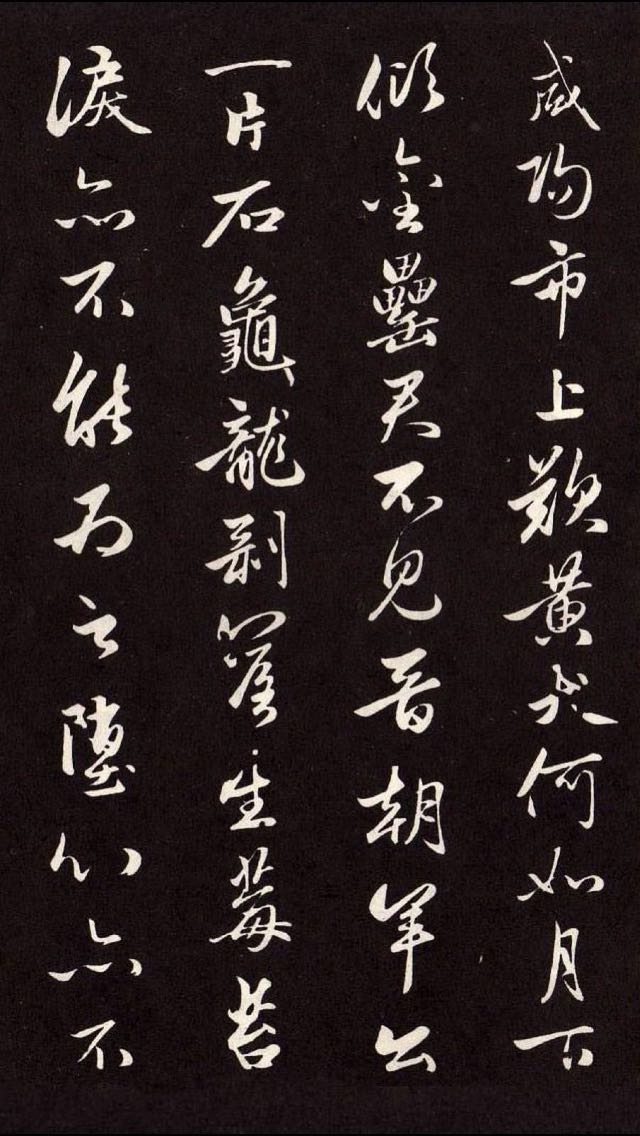 咸陽市上歎黃犬何如月下
傾金罍君不見晉朝羊公
一片石龜龍剝落生莓苔
淚亦不能為之墮心亦不